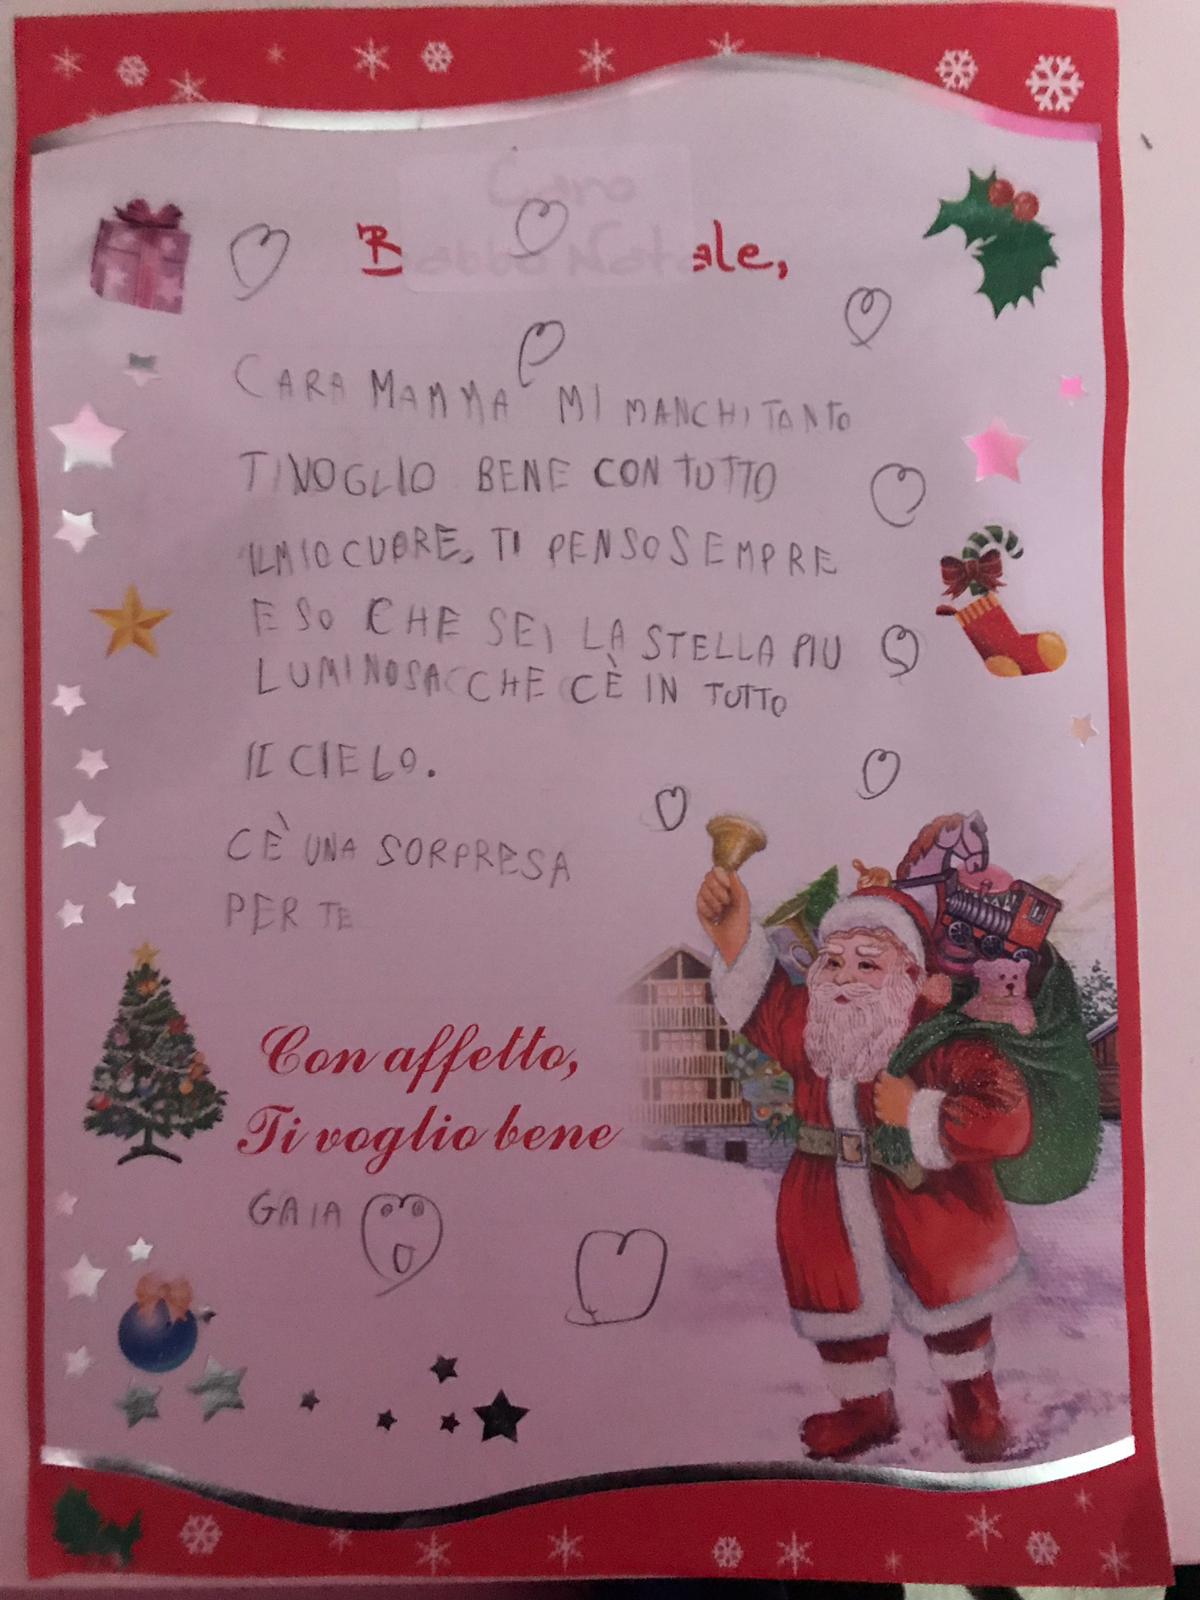 Caro
Babbo Natale,
CARA MAMMA MI MANCHI TANTO
TI VOGLIO BENE CON TUTTO
IL MIO CUORE, TI PENSO SEMPRE
E SO CHE SEI LA STELLA PIU
LUMINOSA CHE CÈ IN TUTTO
IL CIELO.
CÈ UNA SORPRESA
PER TE
Con affetto,
Ti voglio bene
GAIA